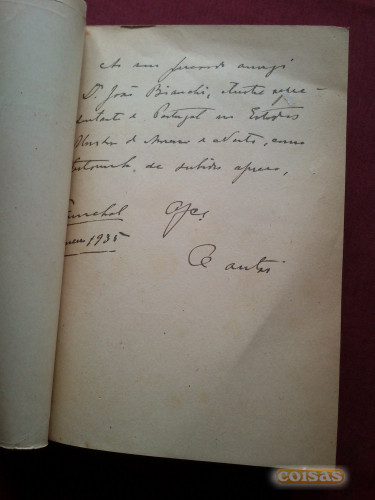 Ao seu prezado amigo
D. João Bianchi, ilustre repre-
sentante de Portugal nos Estados
Unidos da America do Norte, como
testemunho de subido apreço,
Funchal
1935
of.
Dantas
coisas